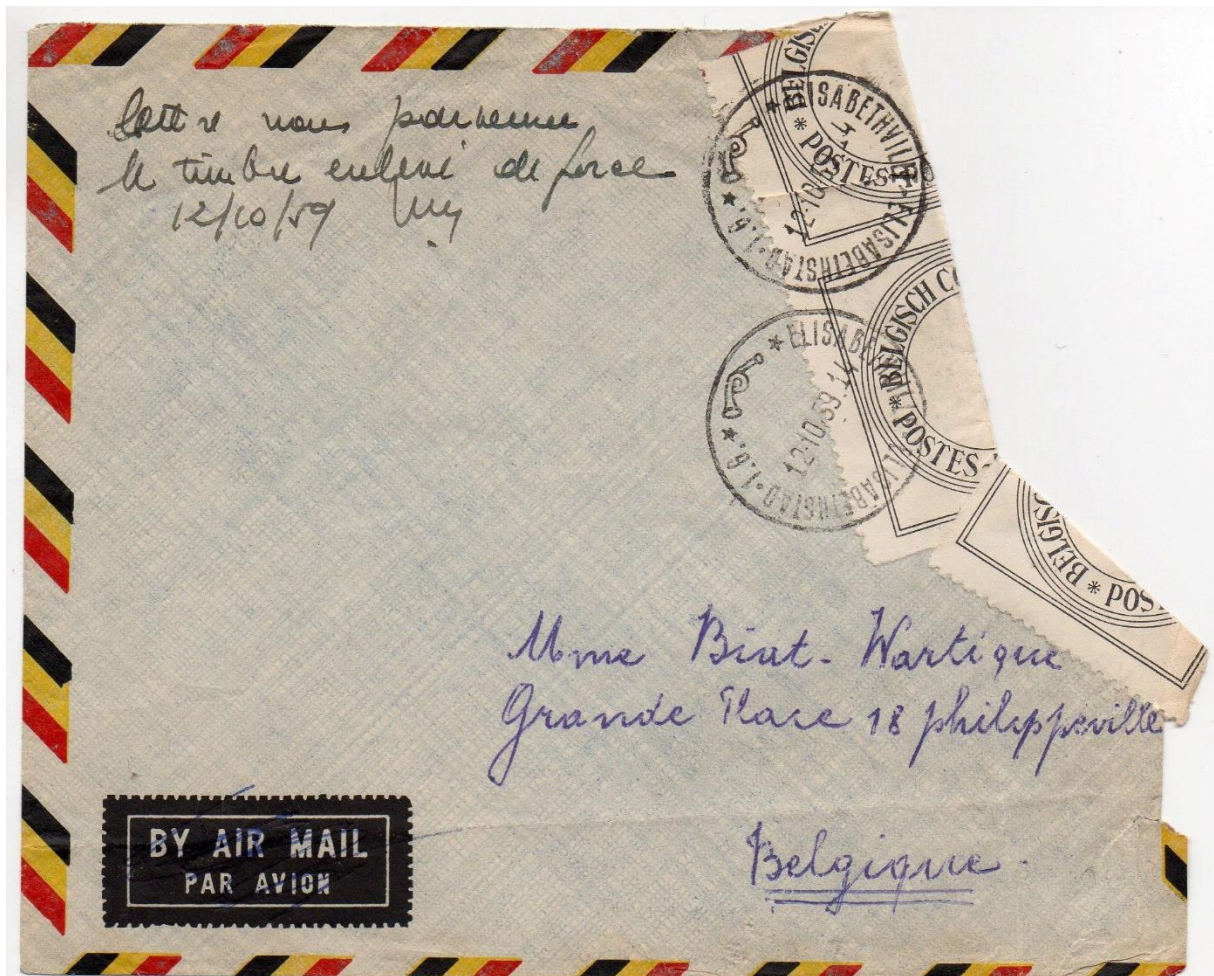 Lettre nous parvenue
le timbre enlevé de force
12/10/59
BELGISCH
POSTES
* ELISABETHVILLE
12-10
ELISABETHSTAD · 1.G. *
BELGISCH CO
* POSTES
* ELISAB
12-10.59.14
ELISABETHSTAD · 1.G. *
BELGISC
* POST
Mme Biat - Wartique
Grande Place 18 philippeville
Belgique.
BY AIR MAIL
PAR AVION